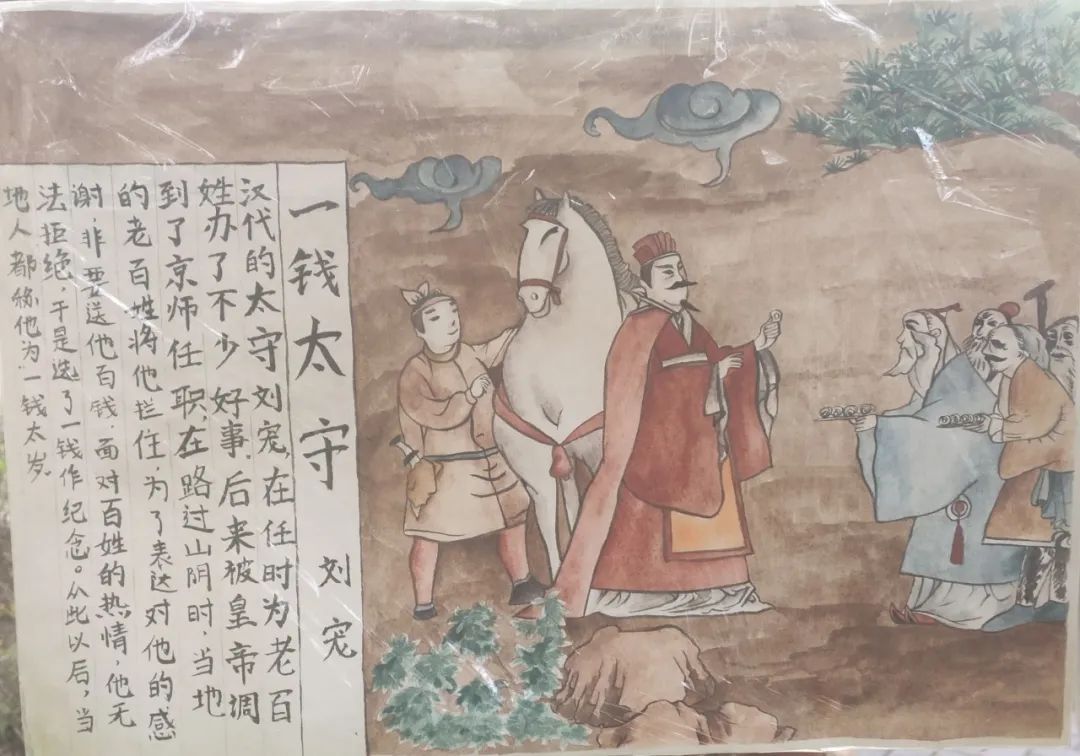 一钱太守 刘宠
汉代的太守刘宠,在任时为老百
姓办了不少好事.后来被皇帝调
到了京师任职,在路过山阴时,当地
的老百姓将他拦住,为了表达对他的感
谢,非要送他百钱,面对百姓的热情,他无
法拒绝,于是选了一钱作纪念。从此以后,当
地人都称他为一钱太岁.